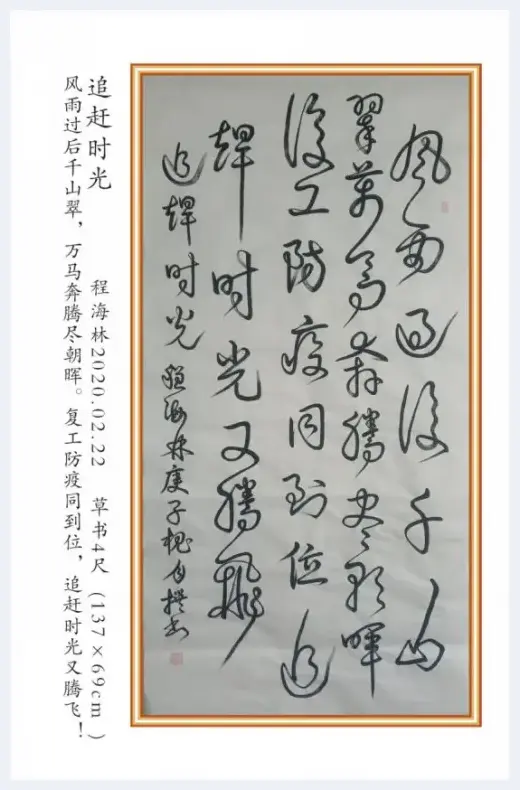 风雨过後千山
翠萬馬奔腾尽朝晖
復工防疫同到位追
趕时光又腾飛
追趕时光 程海林庚子
追赶时光 程海林2020.02.22 草书4尺 (137×69cm)
风雨过后千山翠，万马奔腾尽朝晖。复工防疫同到位，追赶时光又腾飞！